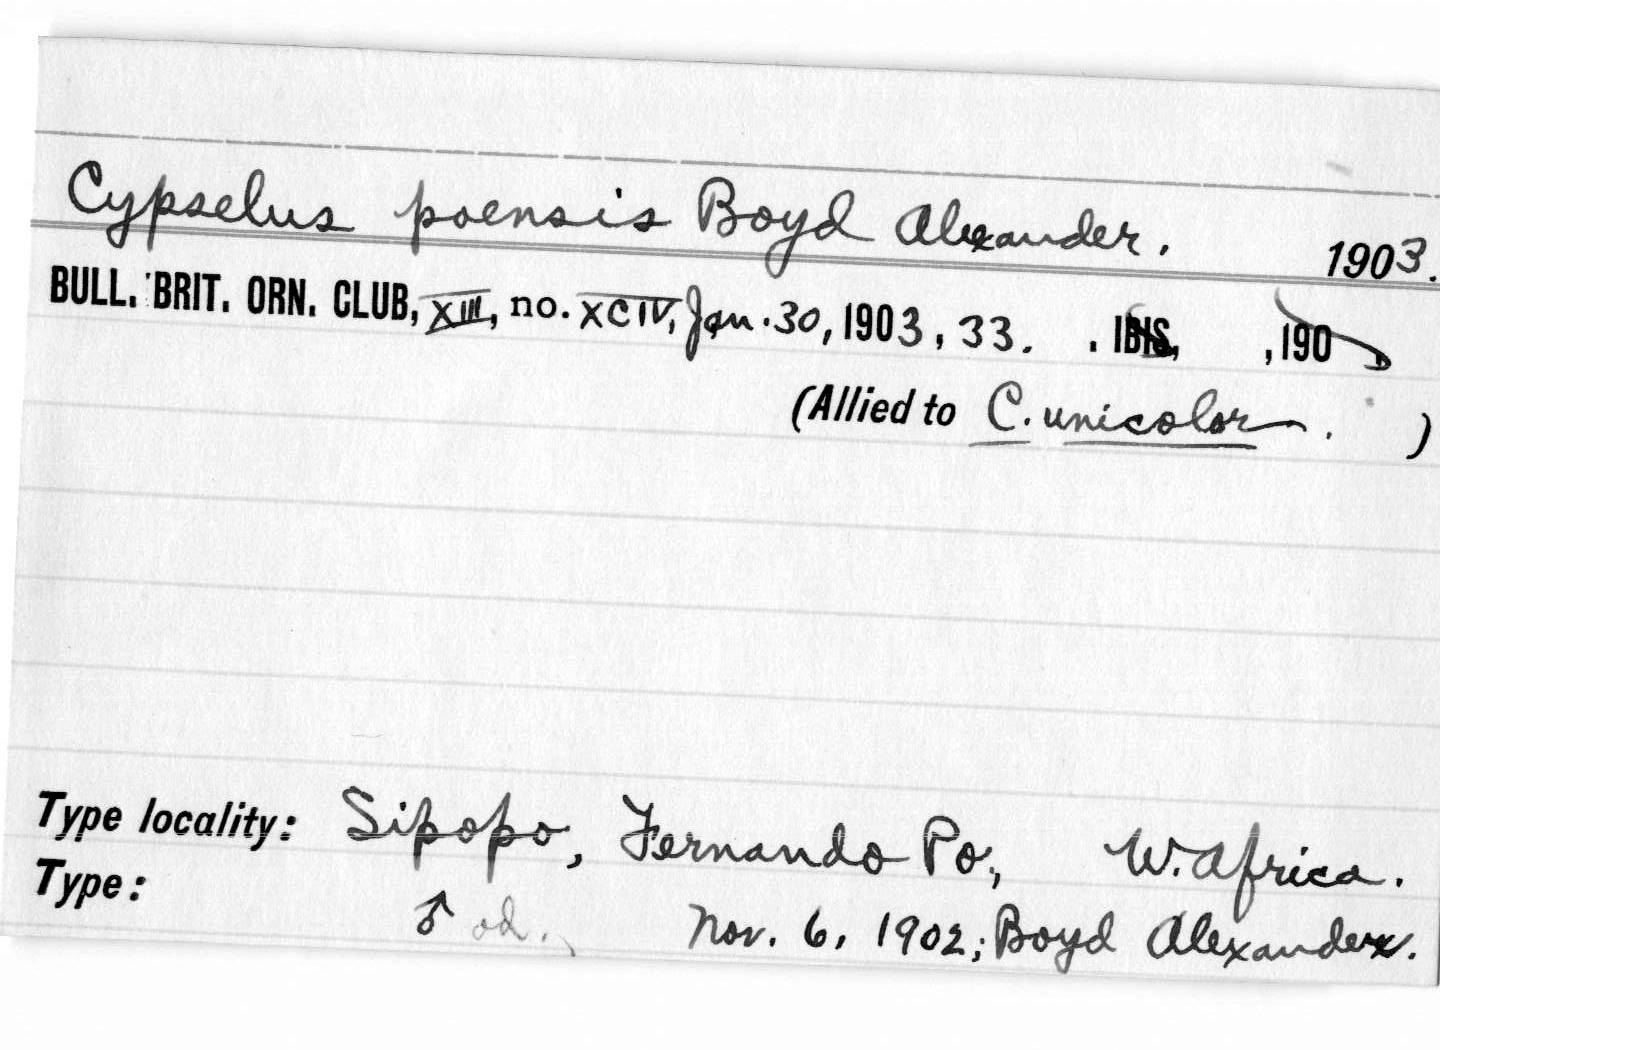 Cypselus poensis Boyd Alexander. 1903.
BULL. BRIT. ORN. CLUB, XIII, no. XCIV, Jan. 30, 1903, 33. . IBIS, , 190 .
(Allied to C. unicolor. )
Type locality: Sipopo, Fernando Po, W. Africa.
Type: ♂ ad. Nov. 6, 1902; Boyd Alexander.